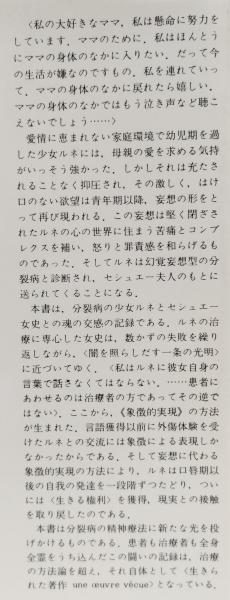 〈私の大好きなママ，私は懸命に努力を
しています．ママのために．私はほんとう
にママの身体のなかに入りたい．だって今
の生活が嫌なのですもの．私を連れていっ
て，ママの身体のなかに戻れたら嬉しい，
ママの身体のなかではもう泣き声など聴こ
えないでしょう……〉
愛情に恵まれない家庭環境で幼児期を過
した少女ルネには，母親の愛を求める気持
がいっそう強かった．しかしそれは充たさ
れることなく抑圧され，その激しく，はけ
口のない欲望は青年期以降，妄想の形をと
って再び現われる．この妄想は堅く閉ざさ
れたルネの心の世界に住まう苦痛とコンプ
レクスを補い，怒りと罪責感を和らげるも
のであった．そしてルネは幻覚妄想型の分
裂病と診断され，セシュエー夫人のもとに
送られてくることになる．
本書は，分裂病の少女ルネとセシュエー
女史との魂の交感の記録である．ルネの治
療に専心した女史は，数かずの失敗を繰り
返しながら，〈闇を照らしだす一条の光明〉
に近づいてゆく．〈私はルネに彼女自身の
言葉で話さなくてはならない．……患者に
あわせるのは治療者の方であってその逆で
はない〉．ここから，《象徴的実現》の方法
が生まれた．言語獲得以前に外傷体験を受
けたルネとの交流には象徴による表現しか
なかったからである．そして妄想に代わる
象徴的実現の方法により，ルネは口唇期以
後の自我の発達を一段階ずつたどり，つい
には〈生きる権利〉を獲得，現実との接触
を取り戻したのである．
本書は分裂病の精神療法に新たな光を投
げかけるものである．患者も治療者も全身
全霊をうち込んだこの闘いの記録は，治療
の方法論を超え，それ自体として〈生きら
れた著作 une œuvre vécue〉となっている．